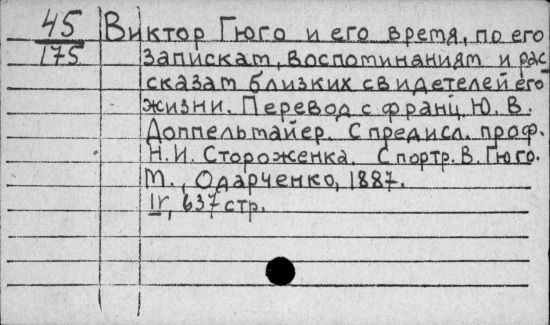 45 Виктор Гюго и его время, по его
175 запискам, воспоминаниям и рас-
сказам близких свидетелей его
жизни. Перевод с франц. Ю. В.
Доппельмайер. С предисл. проф.
Н. И. Стороженка. С портр. В. Гюго.
М., Одарченко, 1887.
IV, 637 стр.